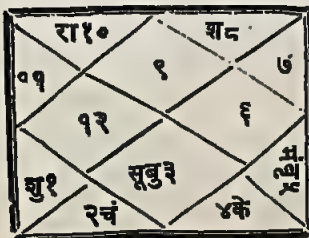 रा१० श८
११ ९ ७
१२ ६
शु१ सूबु३ मंबृ५
२चं ४के